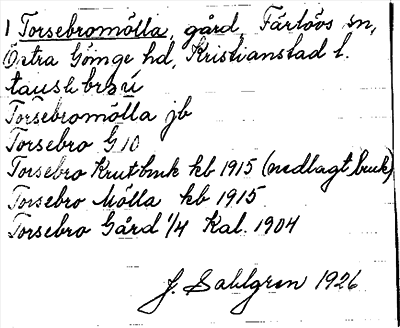 1 Torsebromölla, gård, Färlövs sn,
Östra Göinge hd, Kristianstad l.
Torsebromölla jb
Torsebro G 10
Torsebro Krutbruk kb 1915 (nedlagt bruk)
Torsebro Mölla kb 1915
Torsebro Gård 1/4 Kal. 1904
J. Sahlgren 1926